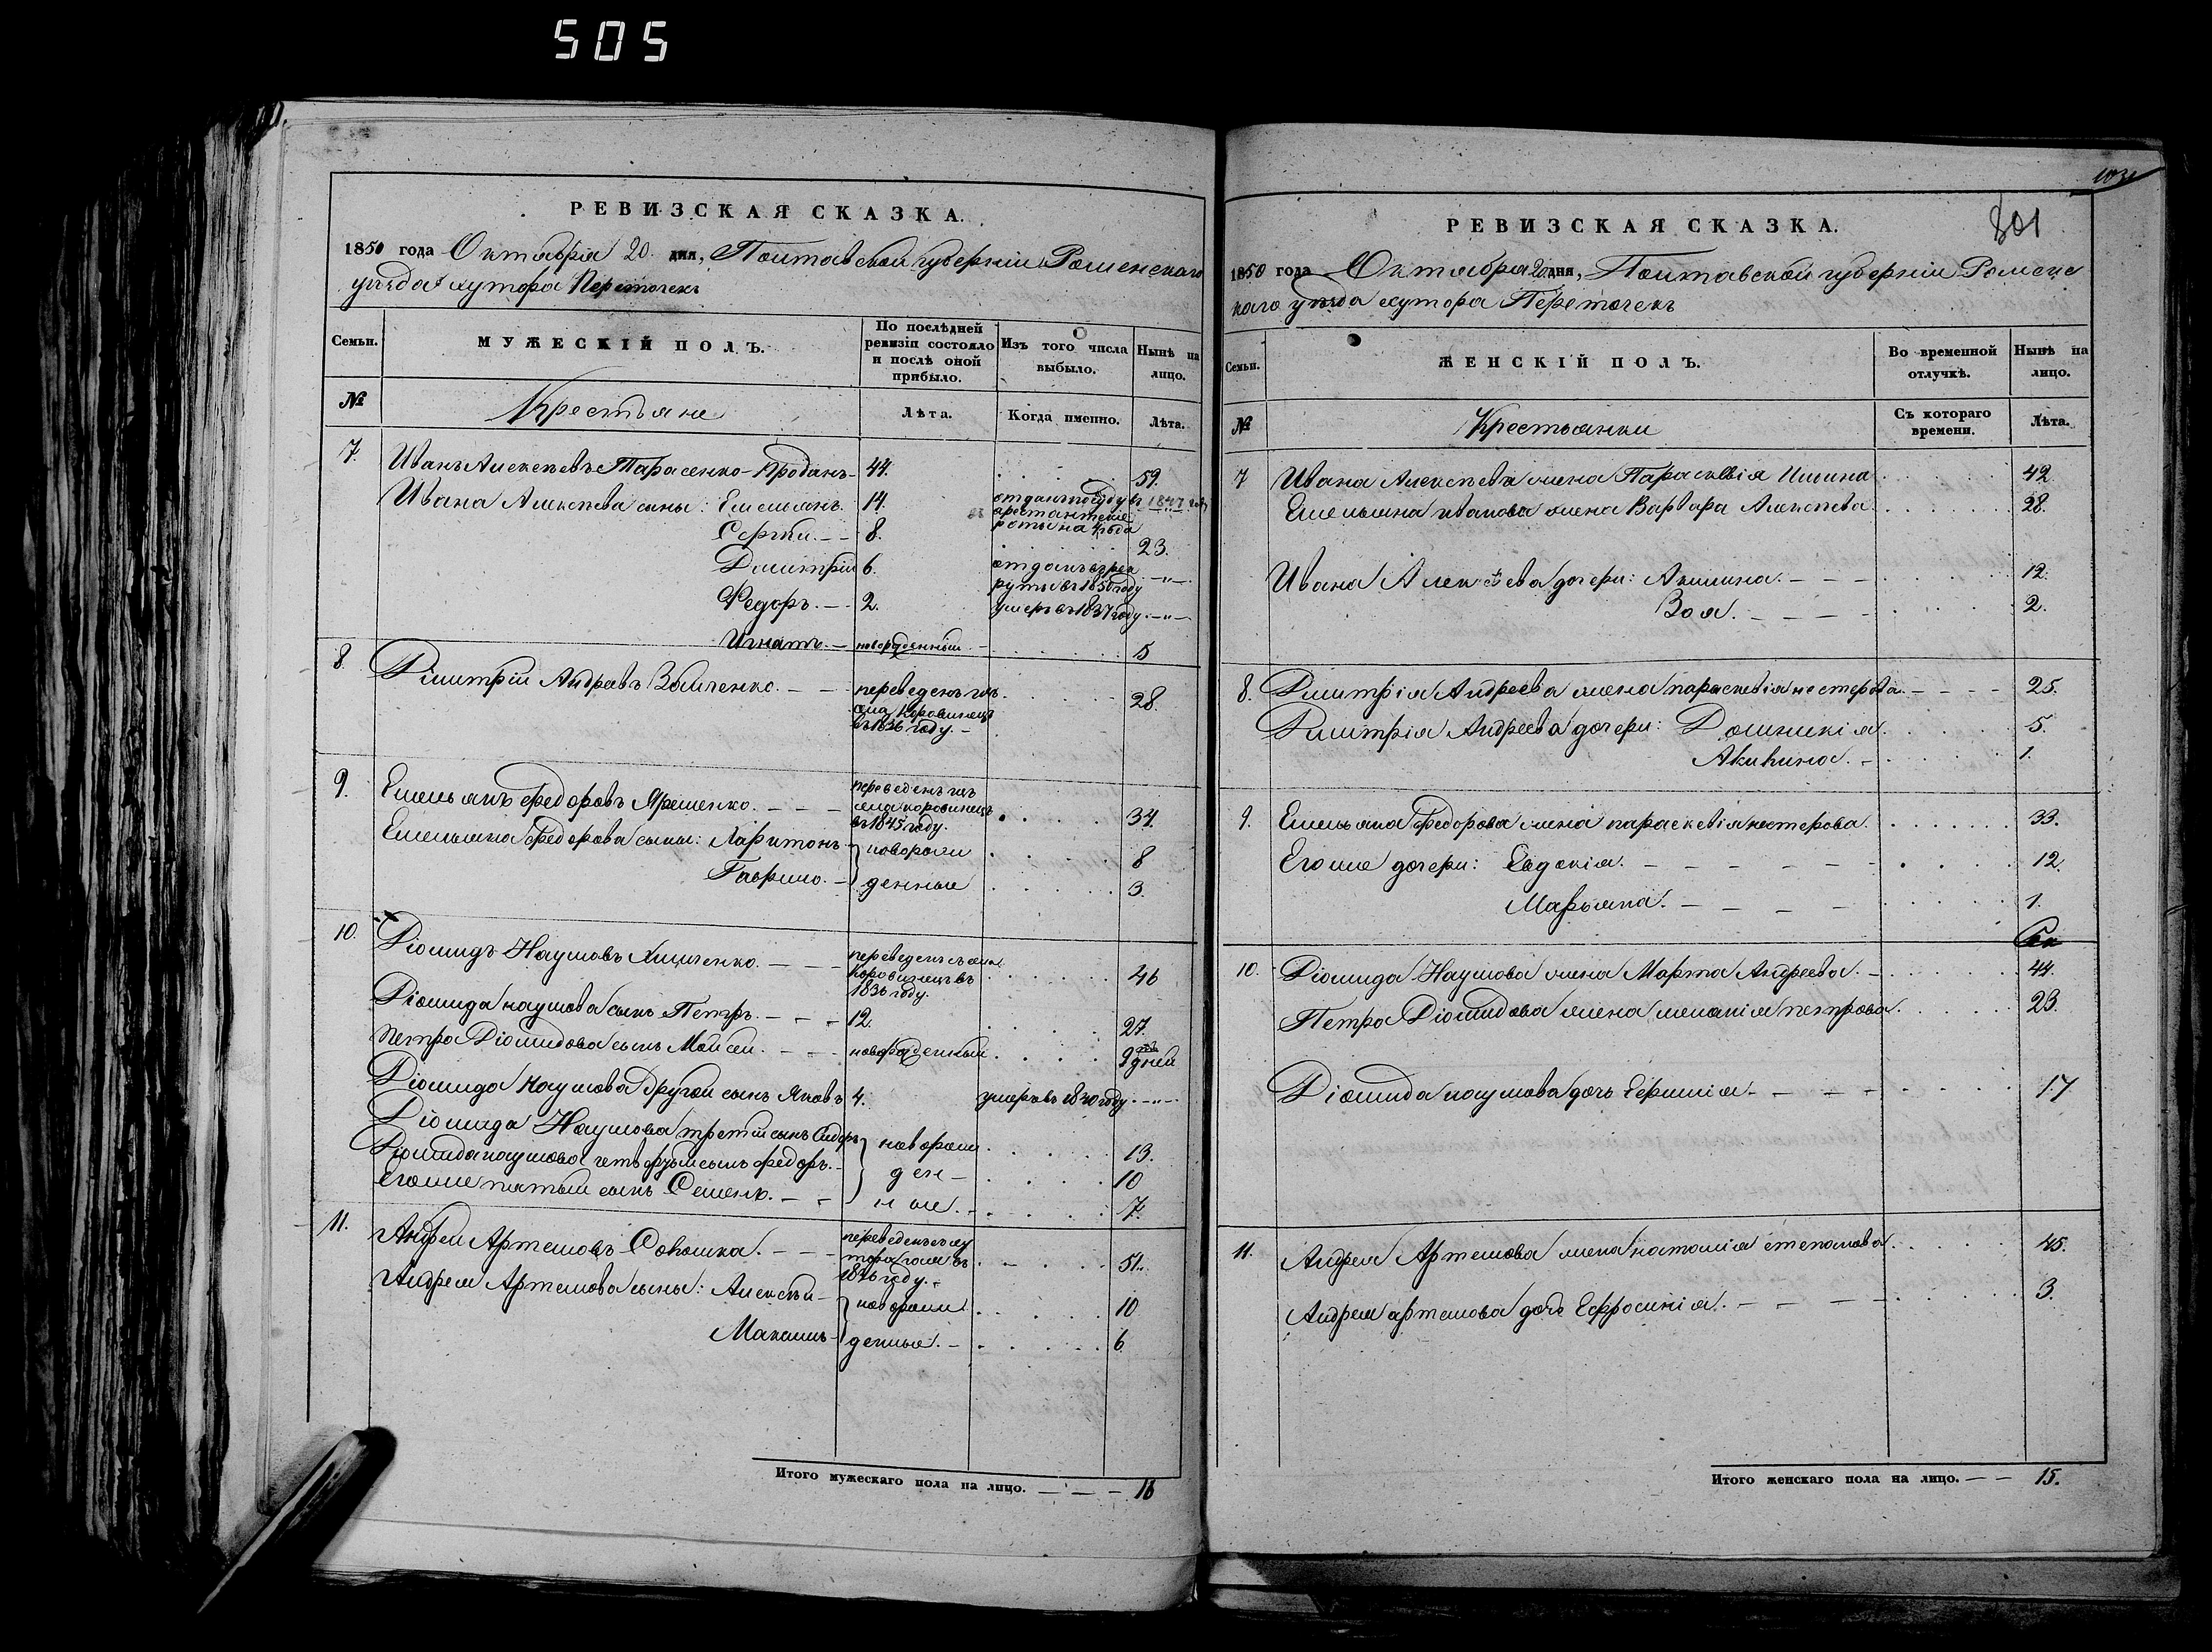 505
РЕВИЗСКАЯ СКАЗКА.
1850 года Октября 20 дня, Полтавской губерніи Роменскаго
уѣзда хутора Переточекъ
Семьи.
МУЖЕСКІЙ ПОЛЪ.
По послѣдней ревизіи состояло и послѣ оной прибыло.
Изъ того числа выбыло.
Нынѣ на лицо.
№
Крестьяне
Лѣта.
Когда именно.
Лѣта.
7. Иванъ Алексѣевъ Тарасенко-Проданъ 44. 59.
Ивана Алексѣева сыны: Емельянъ. 14. отданъ по суду въ 1847 году
арестантскіе
роты на 4 года
Сергѣй. 8. 23.
Димитрій 6. отданъ въ рек
руты въ 1850 году
Федоръ. 2. умеръ въ 1837 году
Игнатъ. новорожденный 15
8. Дмитрій Андреевъ переведенъ изъ 28.
села Коровинецъ
въ 1836 году.
9. Емельянъ Федоровъ Яременко. переведенъ изъ
села Коровинецъ 34.
въ 1845 году.
Емельяна Федорова сыны: Харитонъ новорож 8
Гаврило. денные 3.
10. Діомидъ Наумовъ переведенъ съ села 46
Коровинецъ въ
1836 году.
Діомида Наумова сынъ Петръ. 12. 27.
Петра Діомидова сынъ Моисей. новорожденный. 9 дней
Діомида Наумова другой сынъ Яковъ 4. умеръ въ 1840 году
Діомида Наумова третій сынъ Сидоръ новорож 13.
Діомида Наумова четвертый сынъ Федоръ. ден 10
Его же пятый сынъ Семенъ. ные. 7.
11. Андрей Артемовъ переведенъ съ ху
тора въ 51.
1846 году.
Андрея Артемова сыны: Алексѣй новорож 10
Максимъ денные. 6.
Итого мужескаго пола на лицо. 16
1031
801
РЕВИЗСКАЯ СКАЗКА.
1850 года Октября 20 дня, Полтавской губерніи Роменс
каго уѣзда хутора Переточекъ
Семьи.
ЖЕНСКІЙ ПОЛЪ.
Во временной отлучкѣ.
Нынѣ на лицо.
№
Крестьянки
Съ котораго времени.
Лѣта.
7 Ивана Алексѣева жена Параскевія 42
Емельяна Иванова жена Варвара Алексѣева 28.
Ивана Алексѣева дочери: Акилина. 12.
Зоя. 2.
8. Дмитрія Андреева жена Параскевія Нестерова. 25.
Дмитрія Андреева дочери: Домникія. 5.
Акилина. 1.
9. Емельяна Федорова жена Параскевія Нестерова. 33.
Его же дочери: Евдокія. 12.
Марьяна. 1.
10. Діомида Наумова жена Марта Андреева. 44.
Петра Діомидова жена Меланія Петрова. 23.
Діомида Наумова дочь 17
11. Андрея Артемова жена Наталія Степанова. 45.
Андрея Артемова дочь Ефросинія. 3.
Итого женскаго пола на лицо. 15.